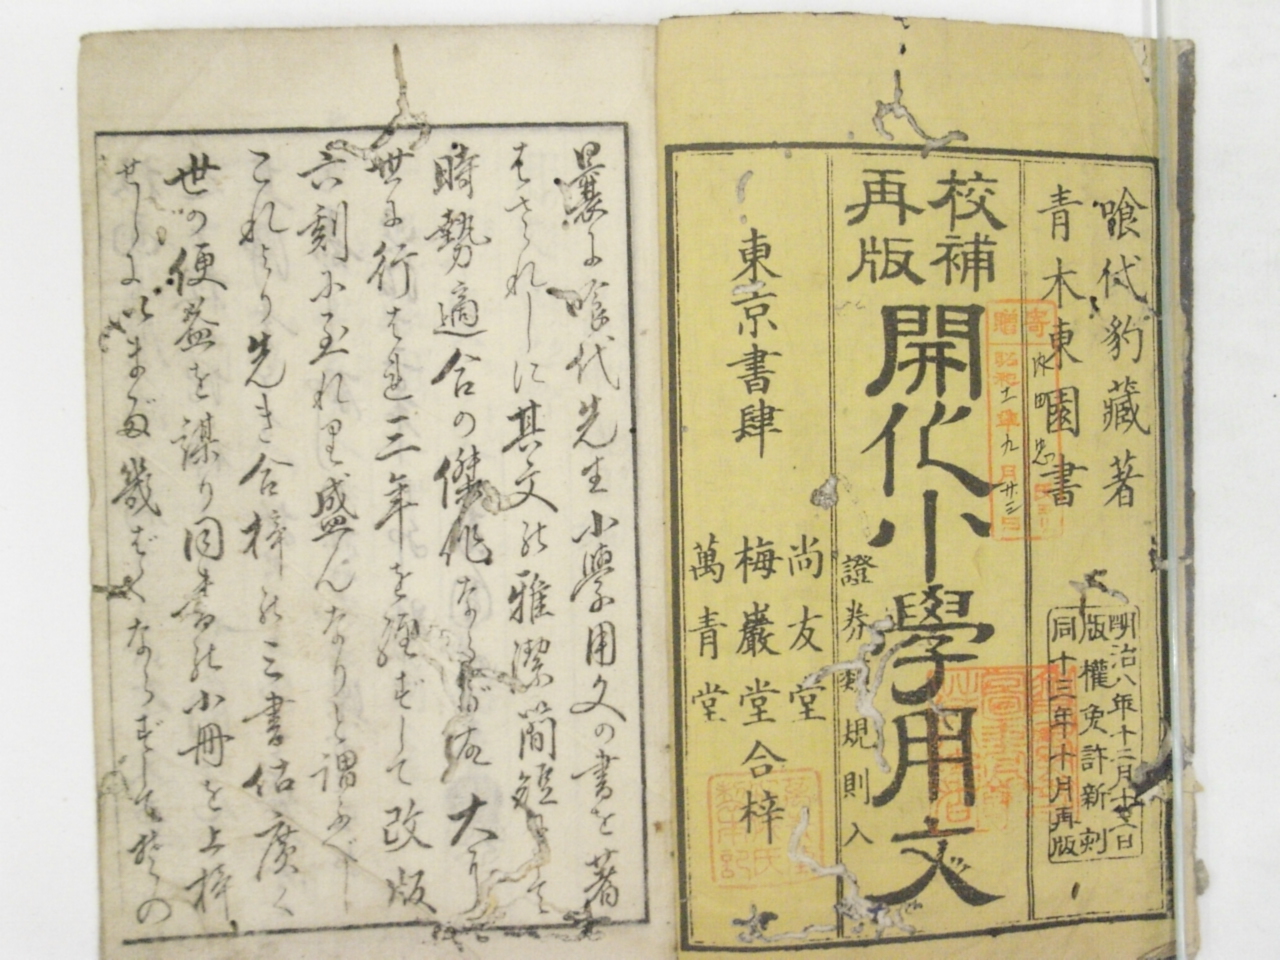 喰代豹藏著
青木東園書
明治八年十二月十八日
版權免許新刻
同十三年十月再版
寄贈
昭和十一年九月廿三日
校補
再版
開化小學用文
證券規則入
東京書肆
尚友堂
梅巖堂合梓
萬青堂
曩に喰代先生小學用文の書を著
はされしに其文の雅潔簡短にして
時勢適合の傑作なるが故大に
世に行はれ三年を経ずして改版
六刻に至れり盛んなりと謂ふべし
これより先き合梓の三書估廣く
世の便益を謀り同書の小冊を上梓
せしにいまだ幾ばくならずして其の